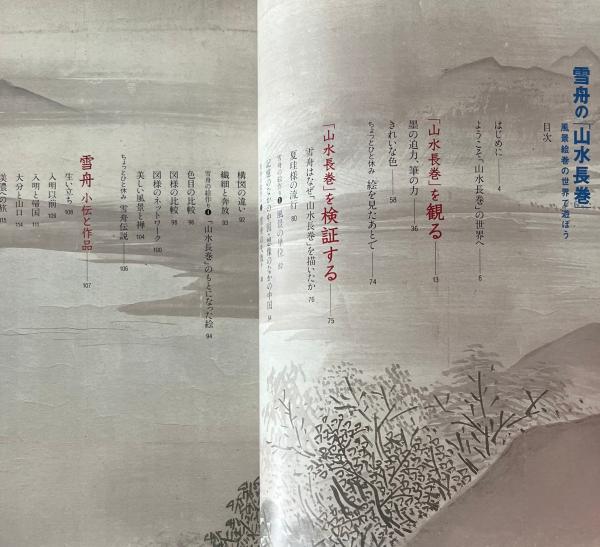 雪舟の『山水長巻』
風景絵巻の世界で遊ぼう
目次
はじめに 4
ようこそ、「山水長巻」の世界へ 6
「山水長巻」を観る 13
墨の迫力、筆の力 36
きれいな色 58
ちょっとひと休み 絵を見たあとで 74
「山水長巻」を検証する 75
雪舟はなぜ「山水長巻」を描いたか 76
夏珪様の流行 80
風景の単位 82
記憶のなかの中国・想像のなかの中国
構図の違い 92
繊細と奔放 93
雪舟の絵作り 4 「山水長巻」のもとになった絵 94
色目の比較 96
図様の比較 98
図様のネットワーク 100
美しい風景と禅 104
ちょっとひと休み 雪舟伝説 106
雪舟 小伝と作品 107
生い立ち 108
入明以前 109
入明と帰国 111
大分と山口 114
美濃への旅 115